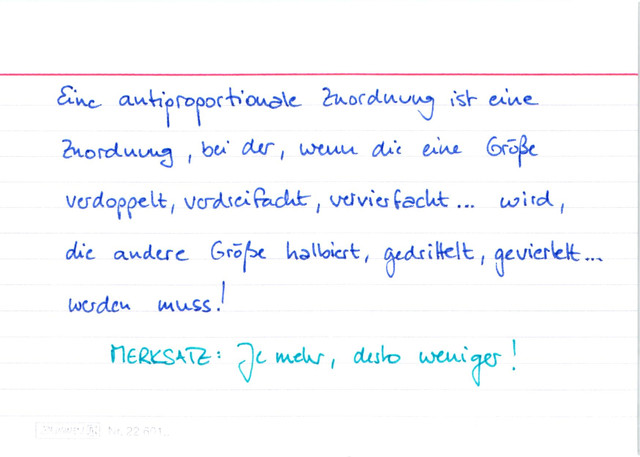 Eine antiproportionale Zuordnung ist eine
Zuordnung, bei der, wenn die eine Größe
verdoppelt, verdreifacht, vervierfacht... wird,
die andere Größe halbiert, gedrittelt, geviertelt...
werden muss!
MERKSATZ: Je mehr, desto weniger!
Nr. 22 601